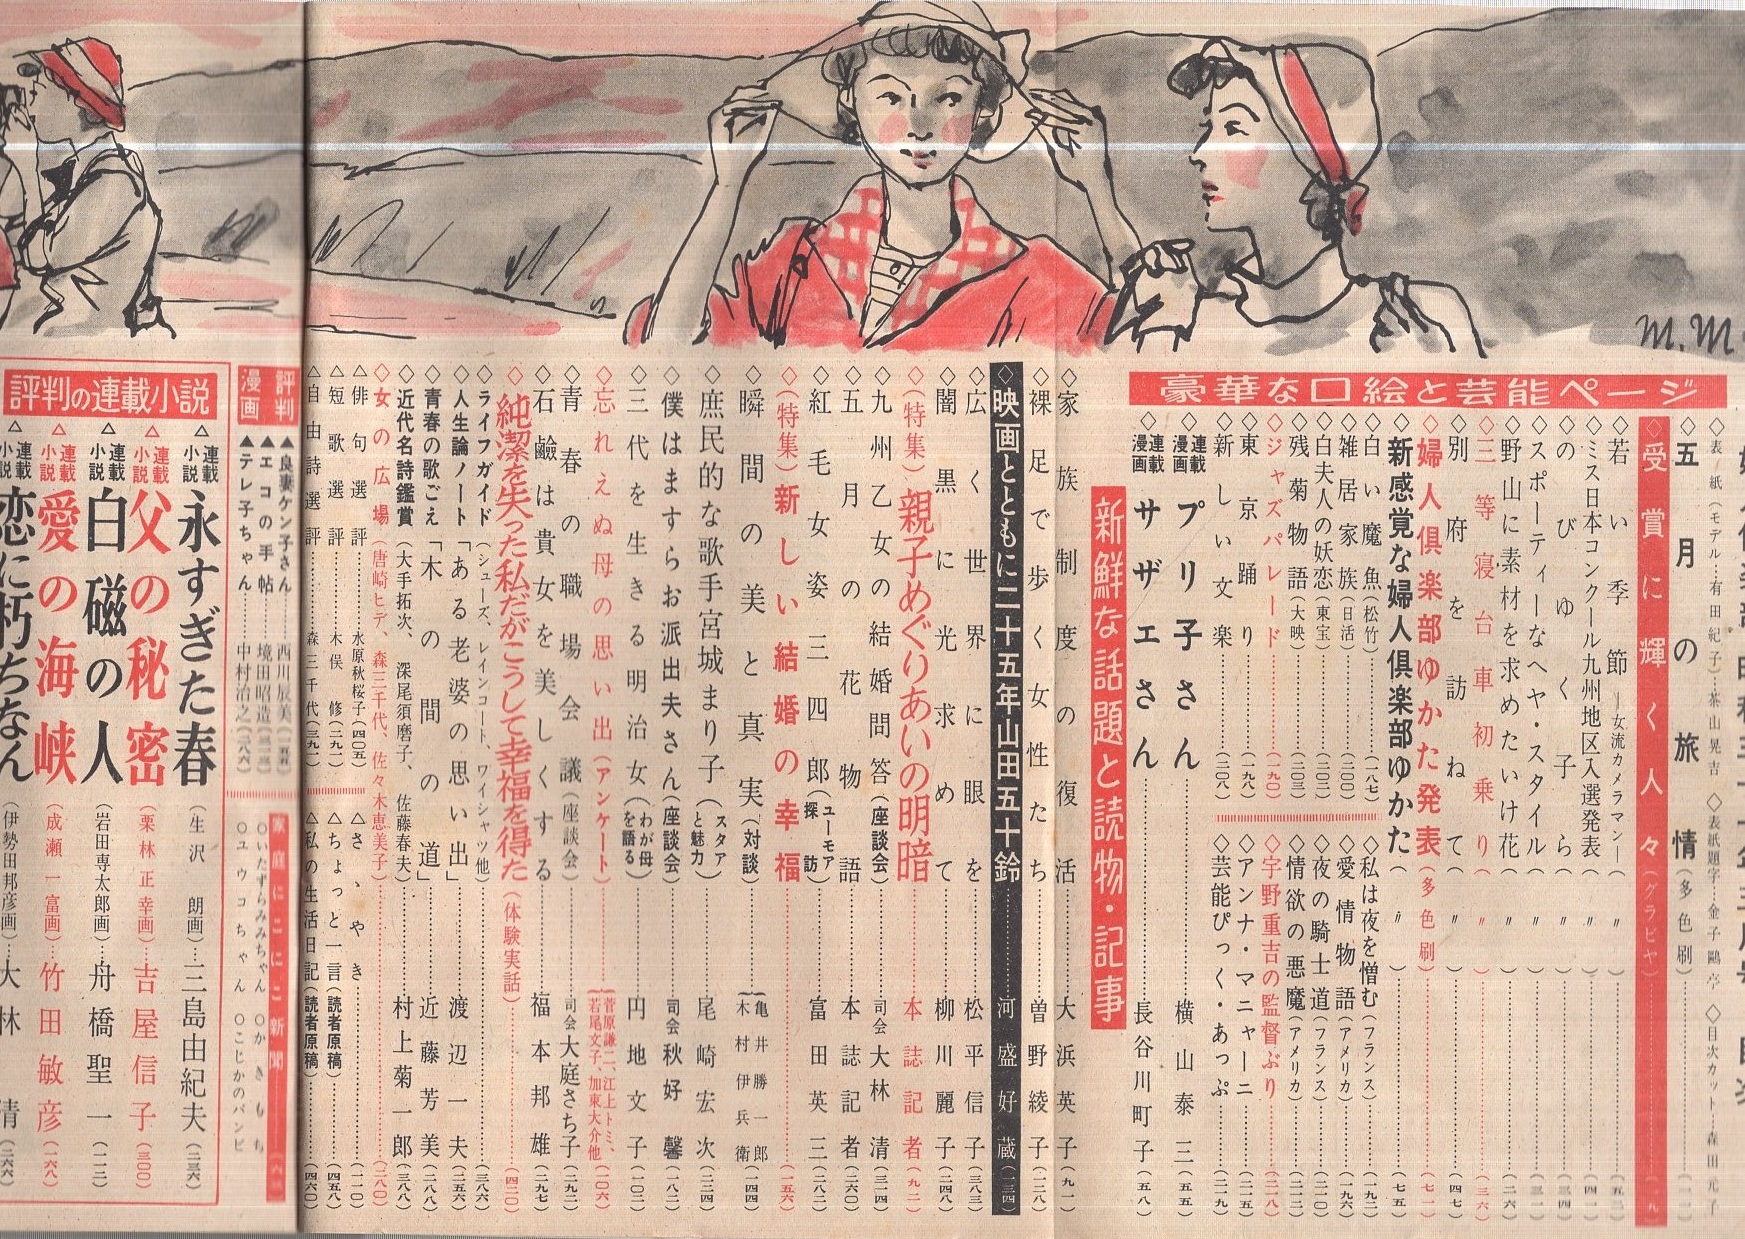 M.M
豪華な口絵と芸能ページ
◇表紙(モデル・有田紀子)…茶山晃吉 ◇表紙題字…金子鷗亭 ◇目次カット…森田元子
◇五月の旅情(多色刷)
◇受賞に輝く人々(グラビヤ)
◇若い季節―女流カメラマン―(〃)(五二)
◇ミス日本コンクール九州地区入選発表(〃)
◇のびゆく子ら(〃)(三四)
◇スポーティーなヘヤ・スタイル(〃)(三一)
◇野山に素材を求めたいけ花(〃)(二六)
◇三等寝台車初乗り(〃)(三六)
◇別府を訪ねて(〃)(四七)
◇婦人倶楽部ゆかた発表(多色刷)(七一)
◇新感覚な婦人倶楽部ゆかた(〃)(七五)
◇白い魔魚(松竹)(一八七)
◇雑居家族(日活)(二〇〇)
◇白夫人の妖恋(東宝)(二〇一)
◇残菊物語(大映)(二〇三)
◇ジャズパレード(一九〇)
◇東京踊り(一九九)
◇新しい文楽(二〇八)
◇私は夜を憎む(フランス)(一九二)
◇愛情物語(アメリカ)(一九六)
◇夜の騎士道(フランス)(二一〇)
◇情欲の悪魔(アメリカ)(二一二)
◇宇野重吉の監督ぶり(二一八)
◇アンナ・マニャーニ(二一五)
◇芸能ぴっく・あっぷ(二一九)
◇連載漫画 プリ子さん 横山泰三(五五)
◇連載漫画 サザエさん 長谷川町子(五八)
新鮮な話題と読物・記事
◇家族制度の復活 大浜英子(九一)
◇裸足で歩く女性たち 曽野綾子(一二八)
◇映画とともに二十五年山田五十鈴 河盛好蔵(一三四)
◇広く世界に眼を 松平信子(三八三)
◇闇黒に光求めて 柳川麗子(二四八)
◇(特集)親子めぐりあいの明暗 本誌記者(九二)
◇九州乙女の結婚問答(座談会) 司会大林清(三一四)
◇五月の花物語 本誌記者(二六〇)
◇紅毛女姿三四郎(ユーモア探訪) 富田英三(二八二)
◇(特集)新しい結婚の幸福(一五六)
◇瞬間の美と真実(対談) 亀井勝一郎 木村伊兵衛(一四四)
◇庶民的な歌手宮城まり子(スタアと魅力) 尾崎宏次(二二四)
◇僕はますらお派出夫さん(座談会) 司会秋好馨(一八二)
◇三代を生きる明治女(わが母を語る) 円地文子(一〇二)
◇忘れえぬ母の思い出(アンケート) 菅原謙二、江上トミ、若尾文子、加東大介他(一〇六)
◇青春の職場会議(座談会) 司会大庭さち子(二九二)
◇石鹼は貴女を美しくする 福本邦雄(二九七)
◇純潔を失った私だがこうして幸福を得た(体験実話)(四二〇)
◇ライフガイド(シューズ、レインコート、ワイシャツ他)(三八六)
◇人生論ノート「ある老婆の思い出」 渡辺一夫(二五六)
◇青春の歌ごえ「木の間の道」 近藤芳美(二八八)
◇近代名詩鑑賞(大手拓次、深尾須磨子、佐藤春夫) 村上菊一郎(三八八)
◇女の広場(唐崎ヒデ、森三千代、佐々木恵美子)(二八〇)
△俳句選評 水原秋桜子(四〇五)
△短歌選評 木俣修(二九二)
△自由詩選評 森三千代(三九一)
△さゝやき(一一〇)
△ちょっと一言(読者原稿)(四五八)
△私の生活日記(読者原稿)(四六〇)
評判漫画
▲良妻ケン子さん 西川辰美(一五五)
▲エコの手帖 境田昭造(三二三)
▲テレ子ちゃん 中村治之(三八六)
家庭にこにこ新聞
○いたずらみみちゃん ○かきもち
○ユウコちゃん ○こじかのバンビ
評判の連載小説
△連載小説 永すぎた春(生沢朗画) 三島由紀夫(二三六)
△連載小説 父の秘密(栗林正幸画) 吉屋信子(三〇〇)
△連載小説 白磁の人(岩田専太郎画) 舟橋聖一(一一二)
△連載小説 愛の海峡(成瀬一富画) 竹田敏彦(一六八)
△連載小説 恋に朽ちなん(伊勢田邦彦画) 大林清(二六六)